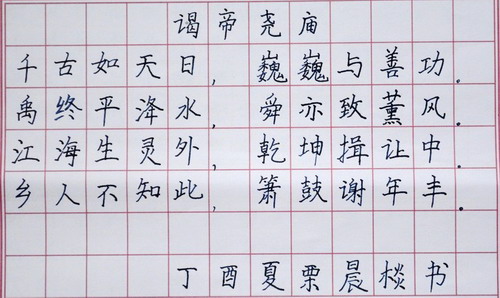 谒帝尧庙
千古如天日，巍巍与善功。
禹终平洚水，舜亦致薰风。
江海生灵外，乾坤揖让中。
乡人不知此，箫鼓谢年丰。
丁酉夏栗晨棪书